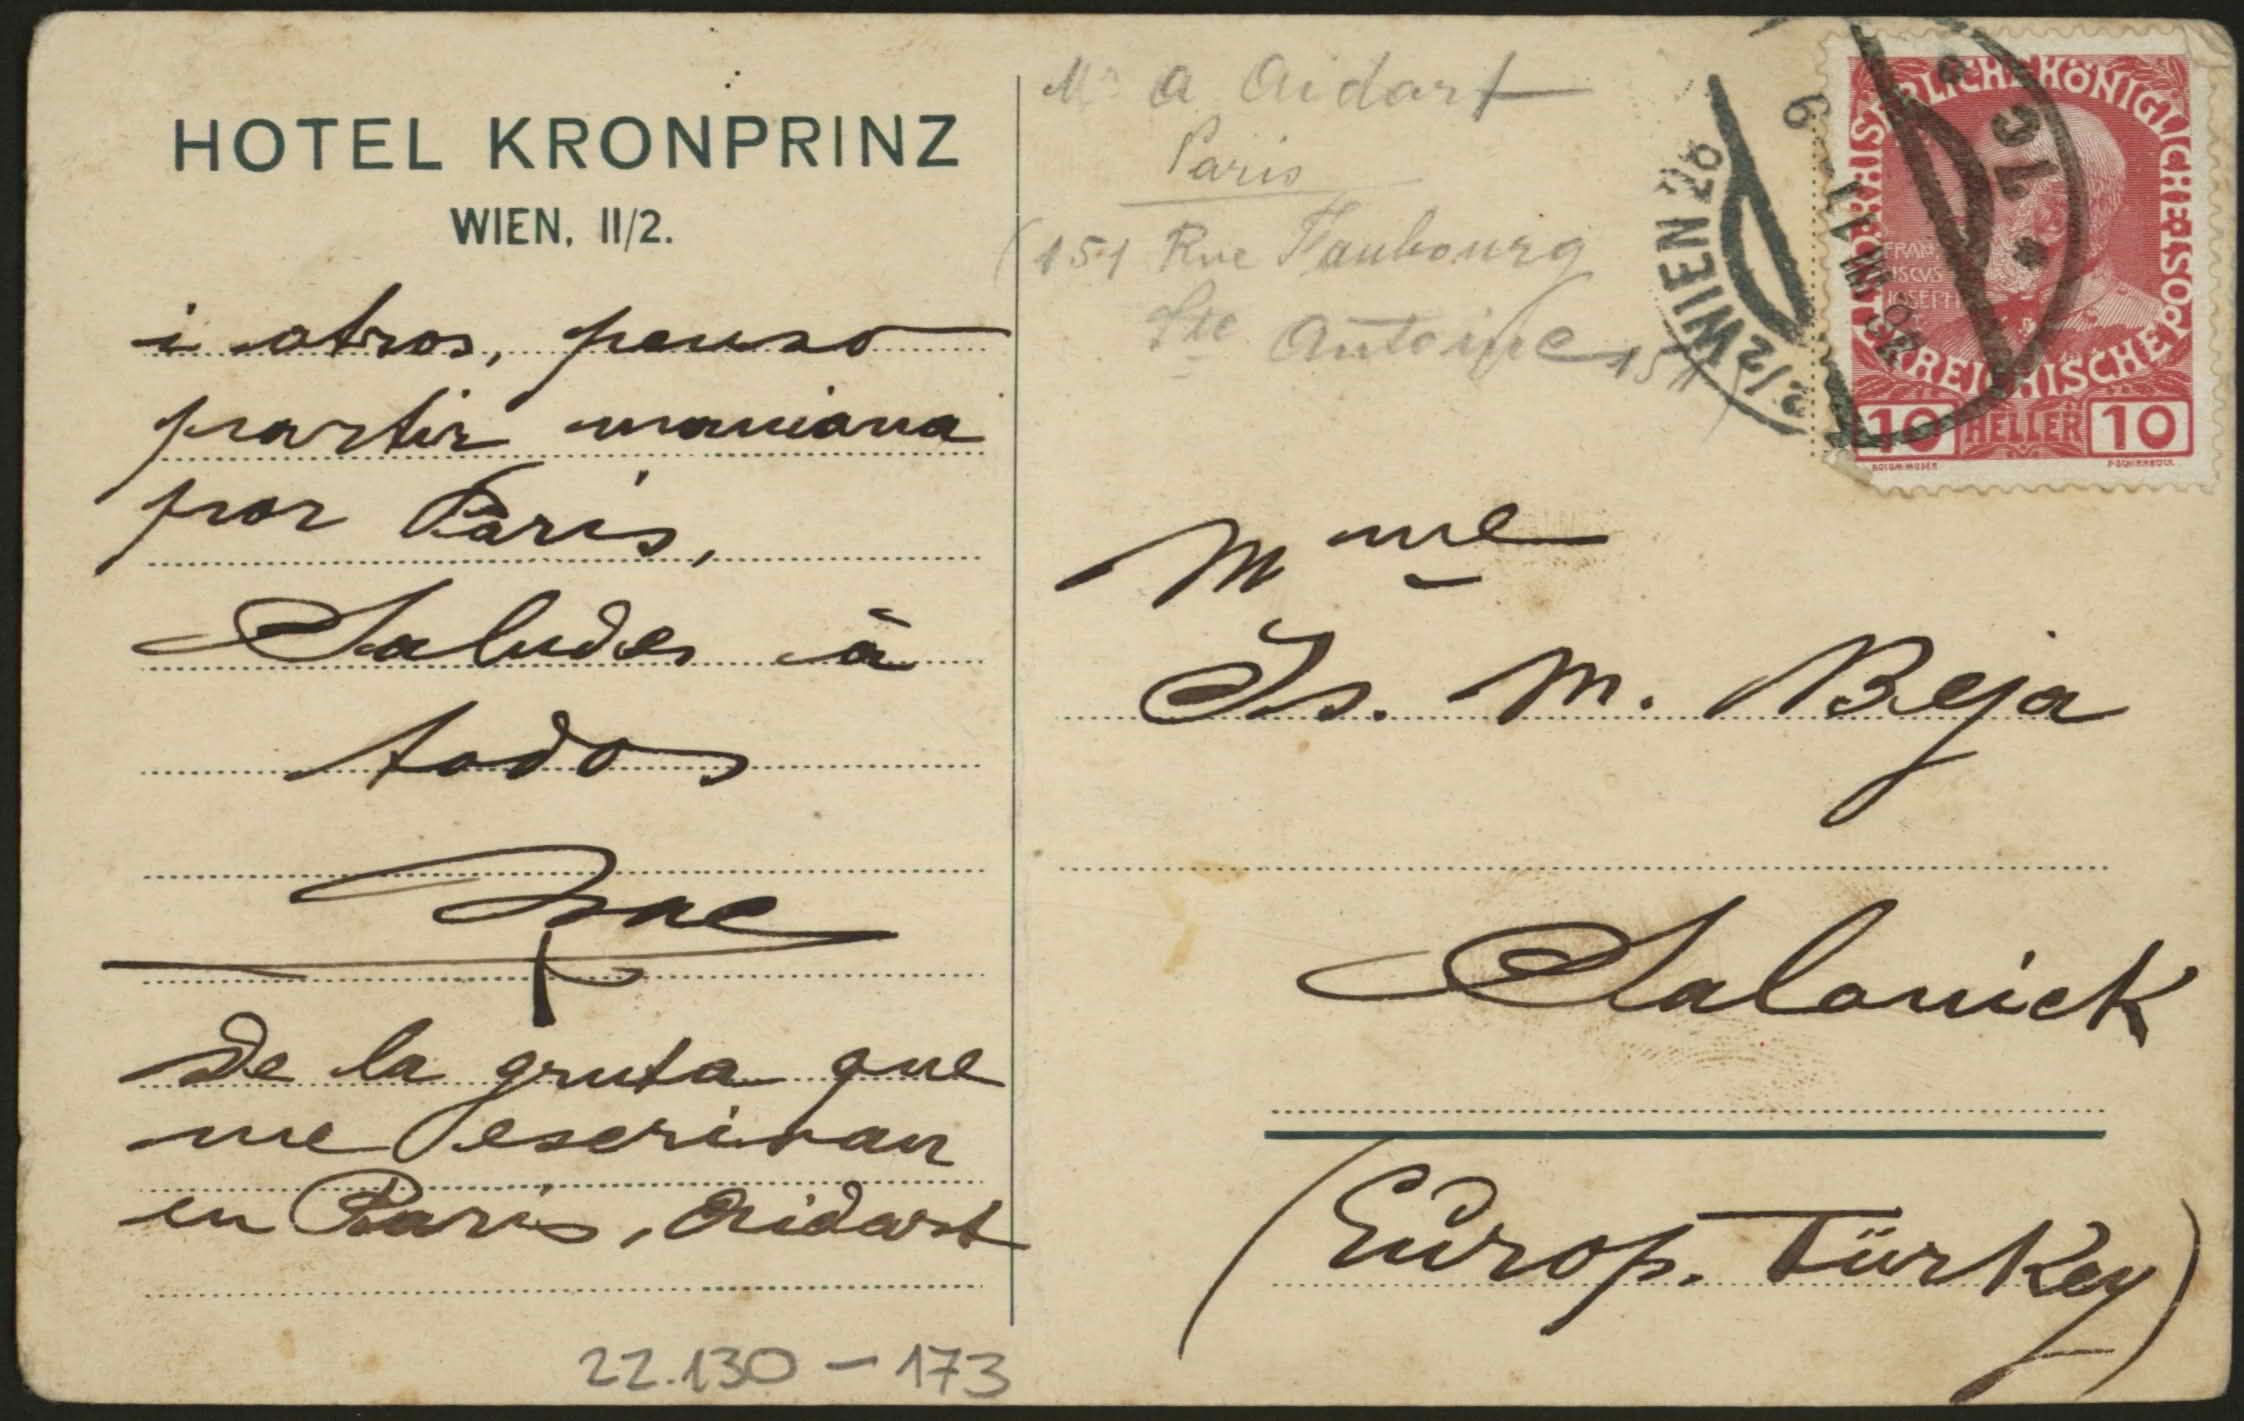 HOTEL KRONPRINZ
WIEN, II/2.
i otros, penso
partir maniana
por Paris,
Saludes à
todos
Isac
De la gruta que
me escrivan
en Paris, Aidart
22.130 – 173
Mr A Aidart
Paris
(151 Rue Faubourg
Ste Antoine 151)
2/2 WIEN 2
KAISERLICHE KÖNIGLICHE
ÖSTERREICHISCHE POST
FRAN
ISCVS
IOSEPH
10 HELLER 10
Mme
Is. M. Beja
Salonick
(Europ. Türkey)